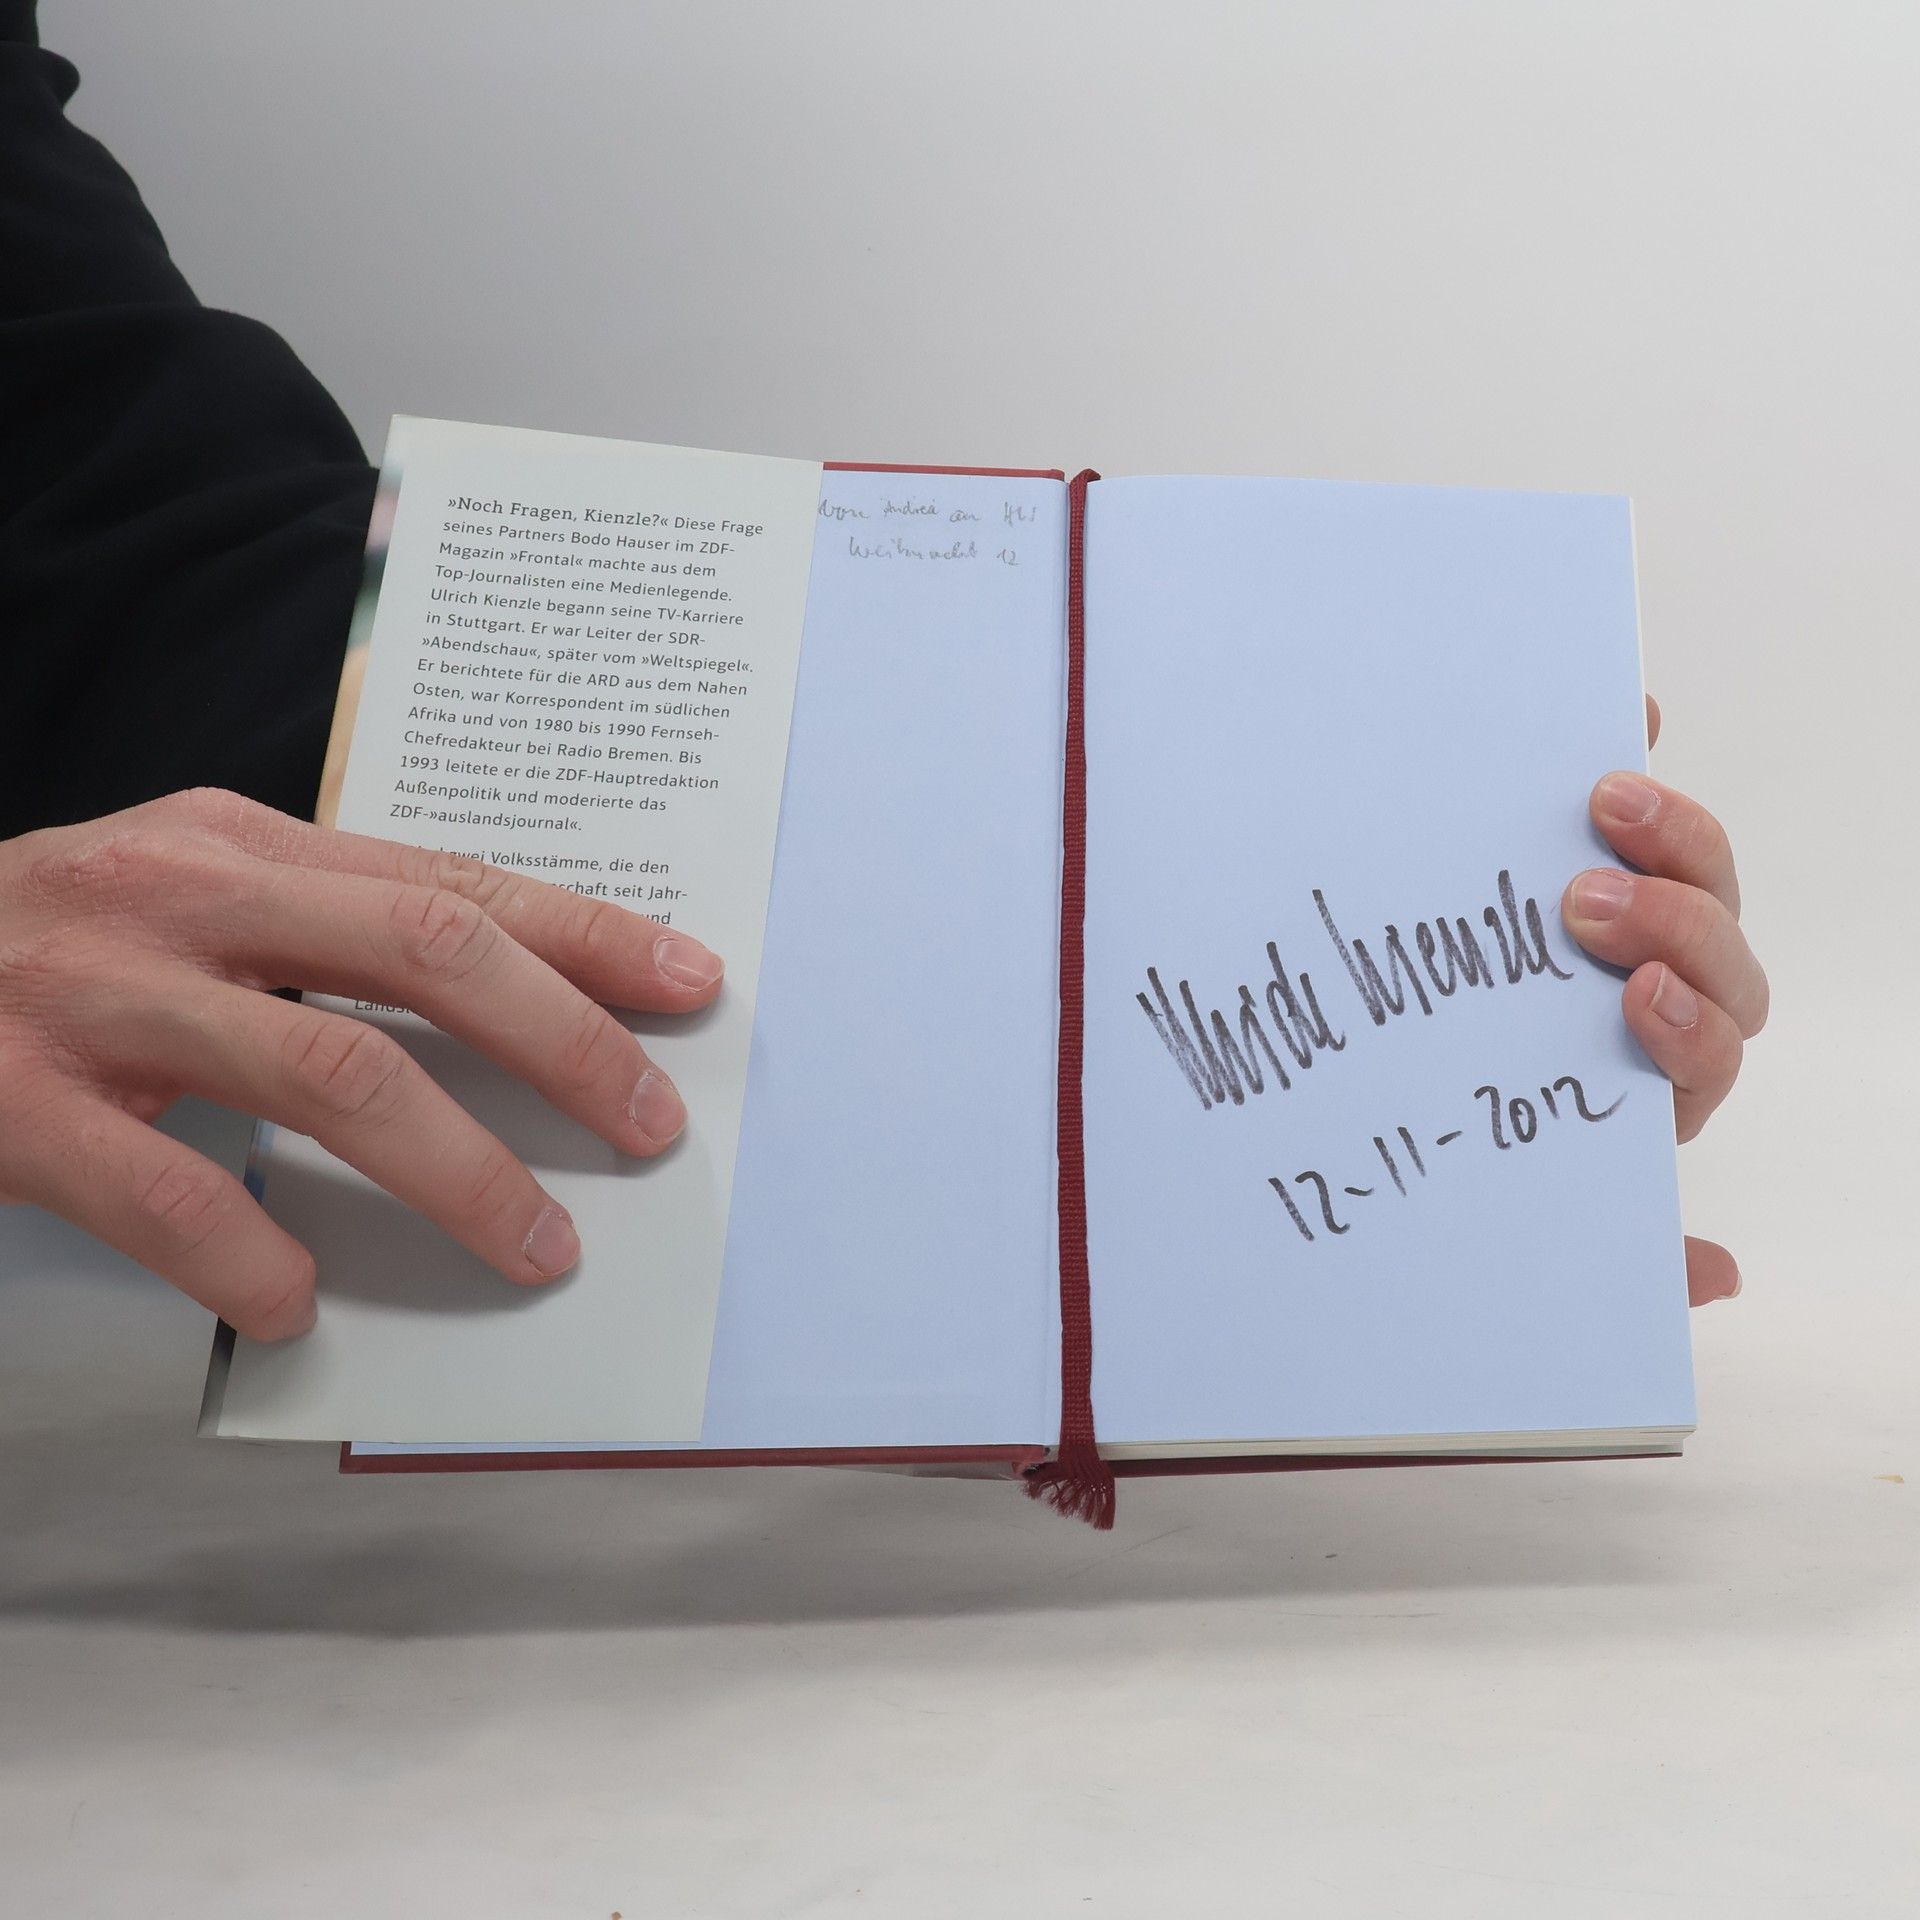 »Noch Fragen, Kienzle?« Diese Frage
seines Partners Bodo Hauser im ZDF-
Magazin »Frontal« machte aus dem
Top-Journalisten eine Medienlegende.
Ulrich Kienzle begann seine TV-Karriere
in Stuttgart. Er war Leiter der SDR-
»Abendschau«, später vom »Weltspiegel«.
Er berichtete für die ARD aus dem Nahen
Osten, war Korrespondent im südlichen
Afrika und von 1980 bis 1990 Fernseh-
Chefredakteur bei Radio Bremen. Bis
1993 leitete er die ZDF-Hauptredaktion
Außenpolitik und moderierte das
ZDF-»auslandsjournal«.
zwei Volksstämme, die den
seit Jahr-
und
von Andrea an
Weihnacht 12
Ulrich Kienzle
12-11-2012